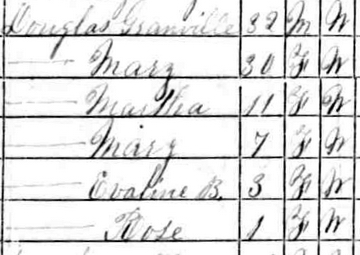 Douglas Granville 32 M W
—— Mary 30 F W
—— Martha 11 F W
—— Mary 7 F W
—— Evaline B. 3 F W
—— Rose 1 F W